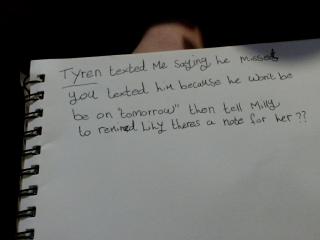 Tyren texted me saying he missed
you texted him because he won't be
be on "tomorrow" then tell Milly
to remind Lily theres a note for her??